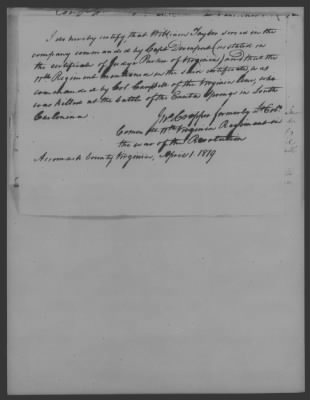 I do hereby certify that William Taylor served in the
company commanded by Capt Davenport (as stated in
the certificate of Judge Parker of Virginia) and that the
11th Regiment mentioned in the said certificate, was
commanded by Col Campbell of the Virginia line, who
was killed at the battle of the Eutaw Springs in South
Carolina
Jno. Cropper formerly Lt Col.
Comm 11th Virginia Regiment in
the war of the Revolution
Accomack County Virginia, April 1 1819